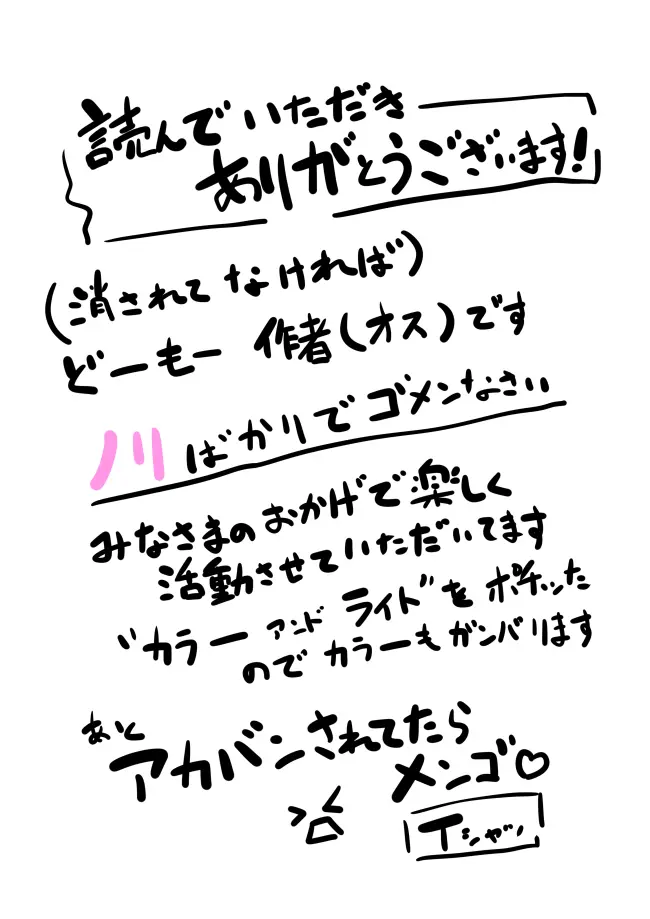 読んでいただき
ありがとうございます!
(消されてなければ)
どーもー 作者(オス)です
川ばかりでゴメンなさい
みなさまのおかげで楽しく
活動させていただいてます
"カラー アンド ライト"をポチッた
のでカラーもガンバります
あと
アカバンされてたら
メンゴ♡
Tシャツ